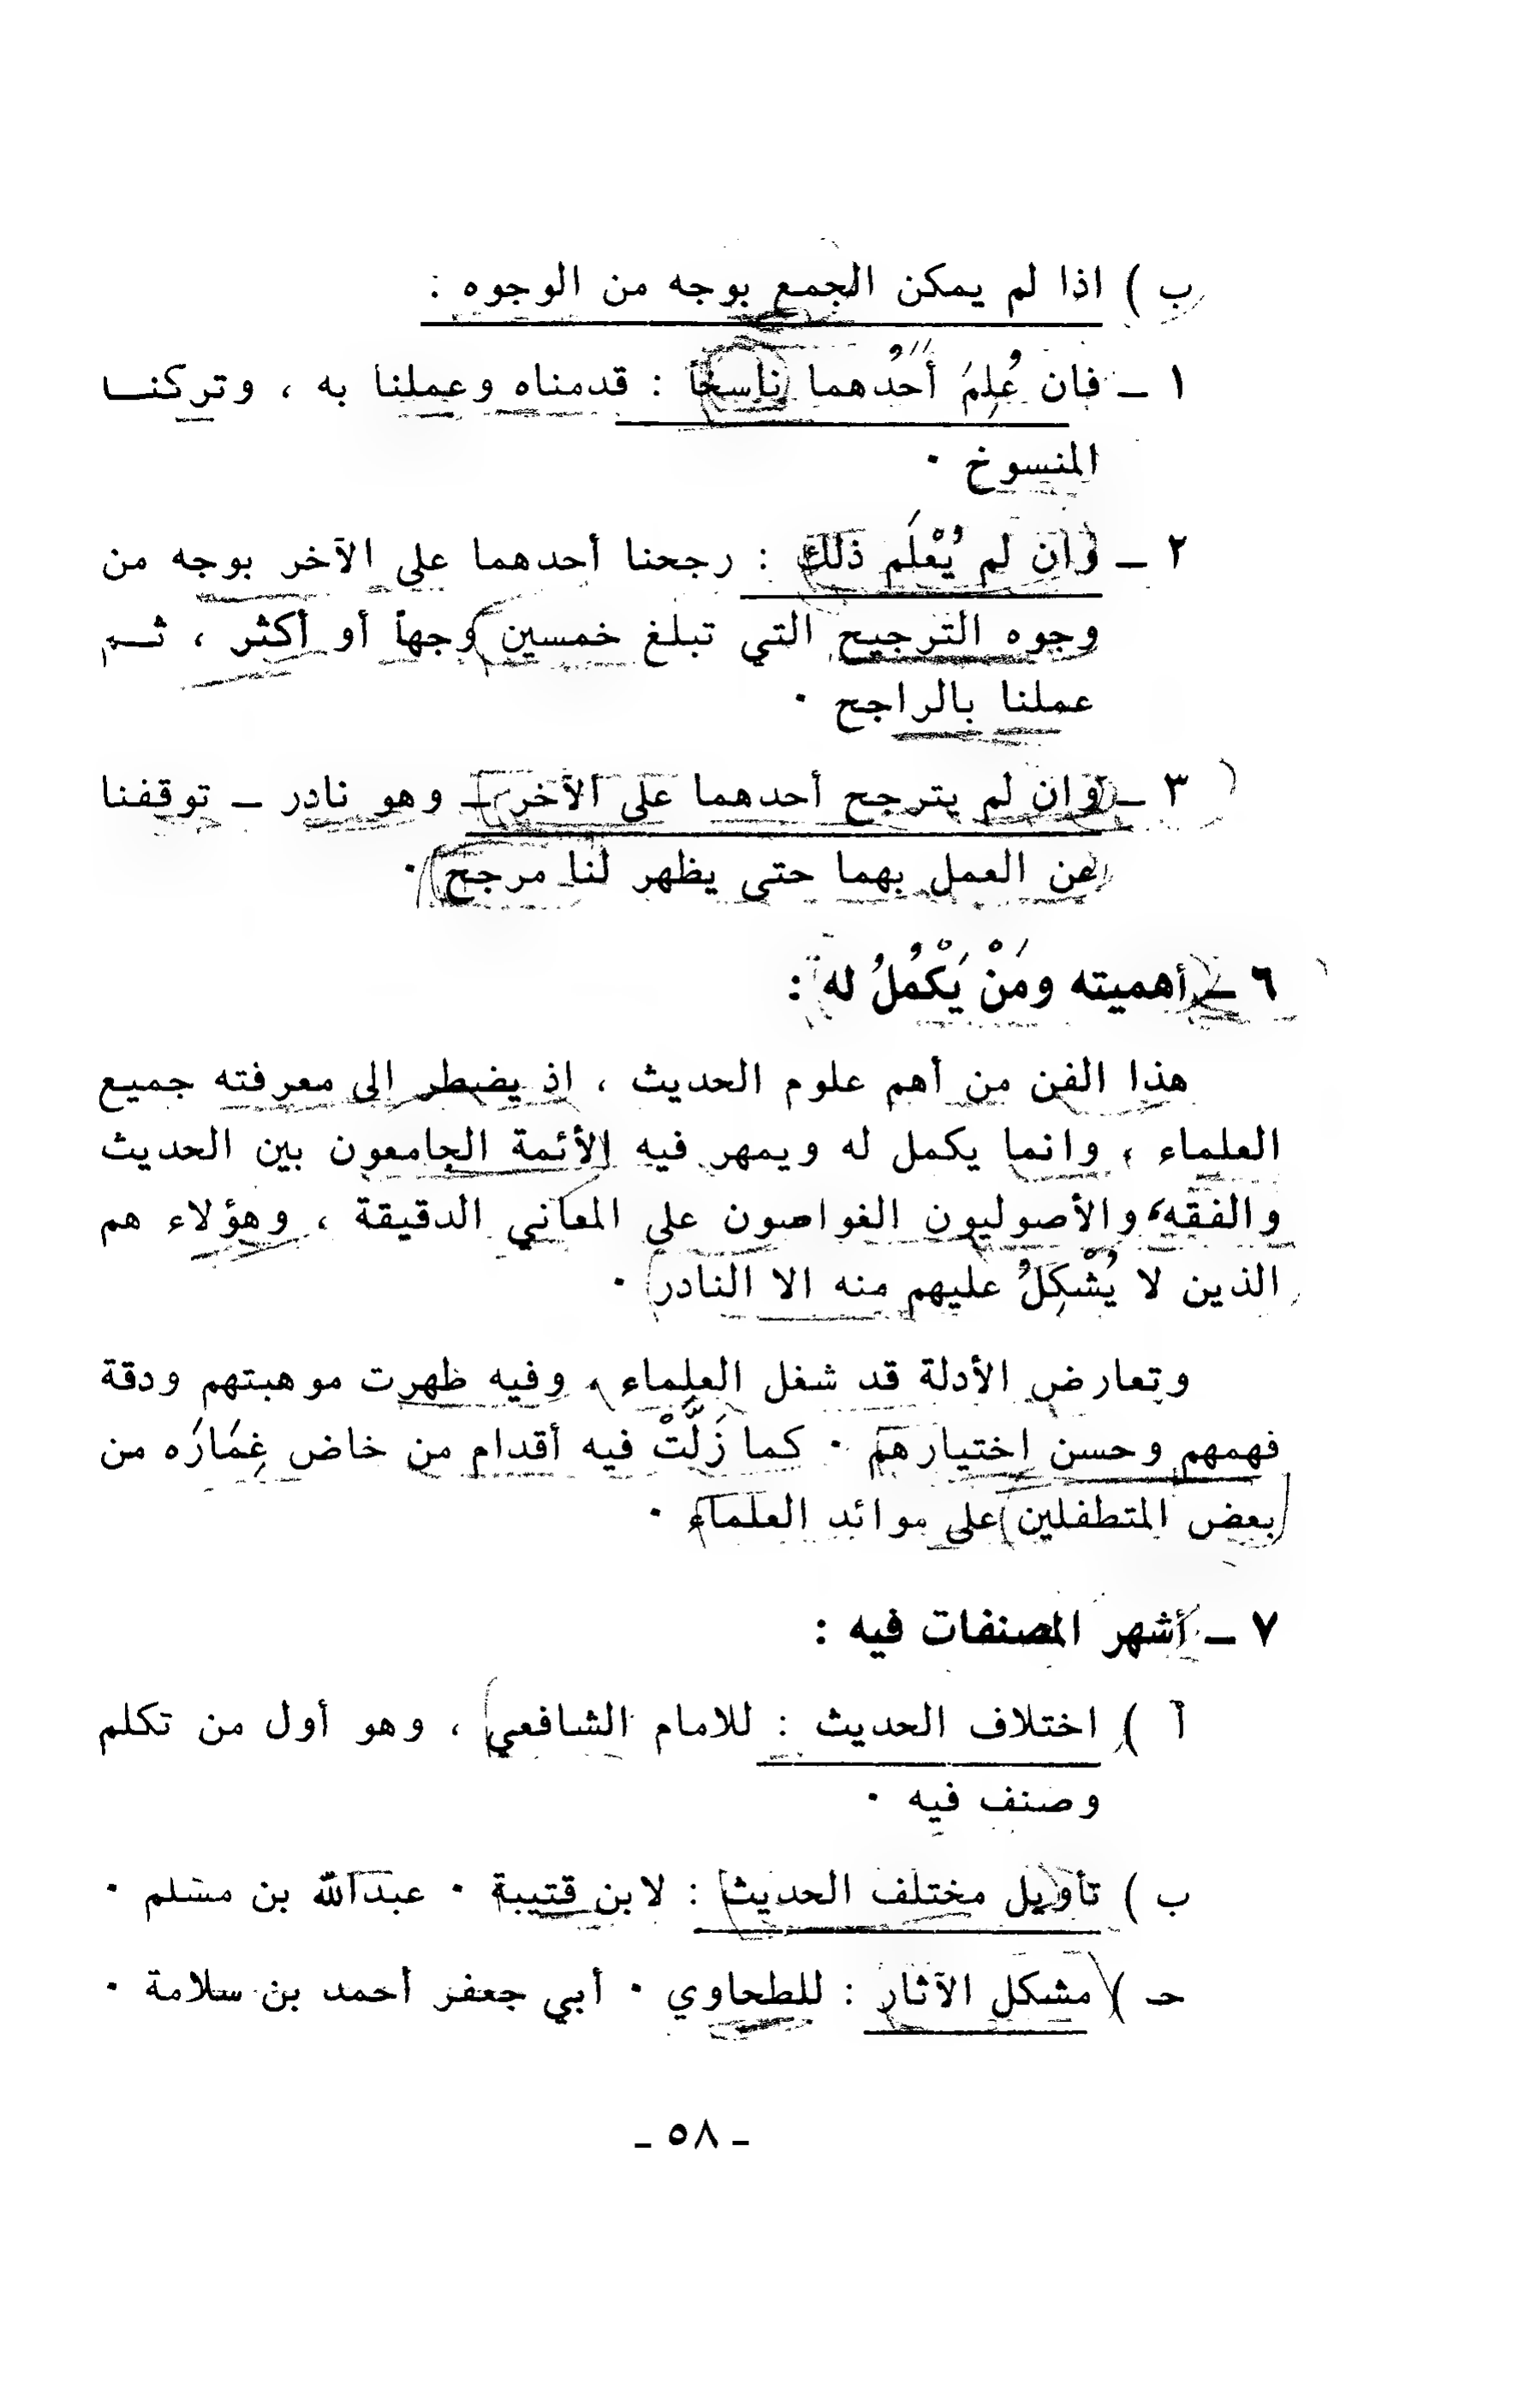 ب ) اذا لم يمكن الجمع بوجه من الوجوه :
١ ــ فان عُلِمَ أَحَدُهما ناسخاً : قدمناه وعملنا به ، وتركنـــا
المنسوخ .
٢ ــ وان لم يُعْلَم ذلك : رجحنا أحدهما على الآخر بوجه من
وجوه الترجيح التي تبلغ خمسين وجهاً أو أكثر ، ثـــم
عملنا بالراجح .
٣ ــ وان لم يترجح أحدهما على الآخر ــ وهو نادر ــ توقفنا
عن العمل بهما حتى يظهر لنا مرجح .
٦ ــ أهميته ومَنْ يَكْمُلُ له :
هذا الفن من أهم علوم الحديث ، اذ يضطر الى معرفته جميع
العلماء ، وانما يكمل له ويمهر فيه الأئمة الجامعون بين الحديث
والفقه، والأصوليون الغواصون على المعاني الدقيقة ، وهؤلاء هم
الذين لا يُشْكِلُ عليهم منه الا النادر .
وتعارض الأدلة قد شغل العلماء ، وفيه ظهرت موهبتهم ودقة
فهمهم وحسن اختيارهم . كما زَلَّتْ فيه أقدام من خاض غِمَارَه من
بعض المتطفلين على موائد العلماء .
٧ ــ أشهر المصنفات فيه :
أ ) اختلاف الحديث : للامام الشافعي ، وهو أول من تكلم
وصنف فيه .
ب ) تأويل مختلف الحديث : لابن قتيبة . عبدالله بن مسلم .
حـ ) مشكل الآثار : للطحاوي . أبي جعفر أحمد بن سلامة .
ــ ٥٨ ــ